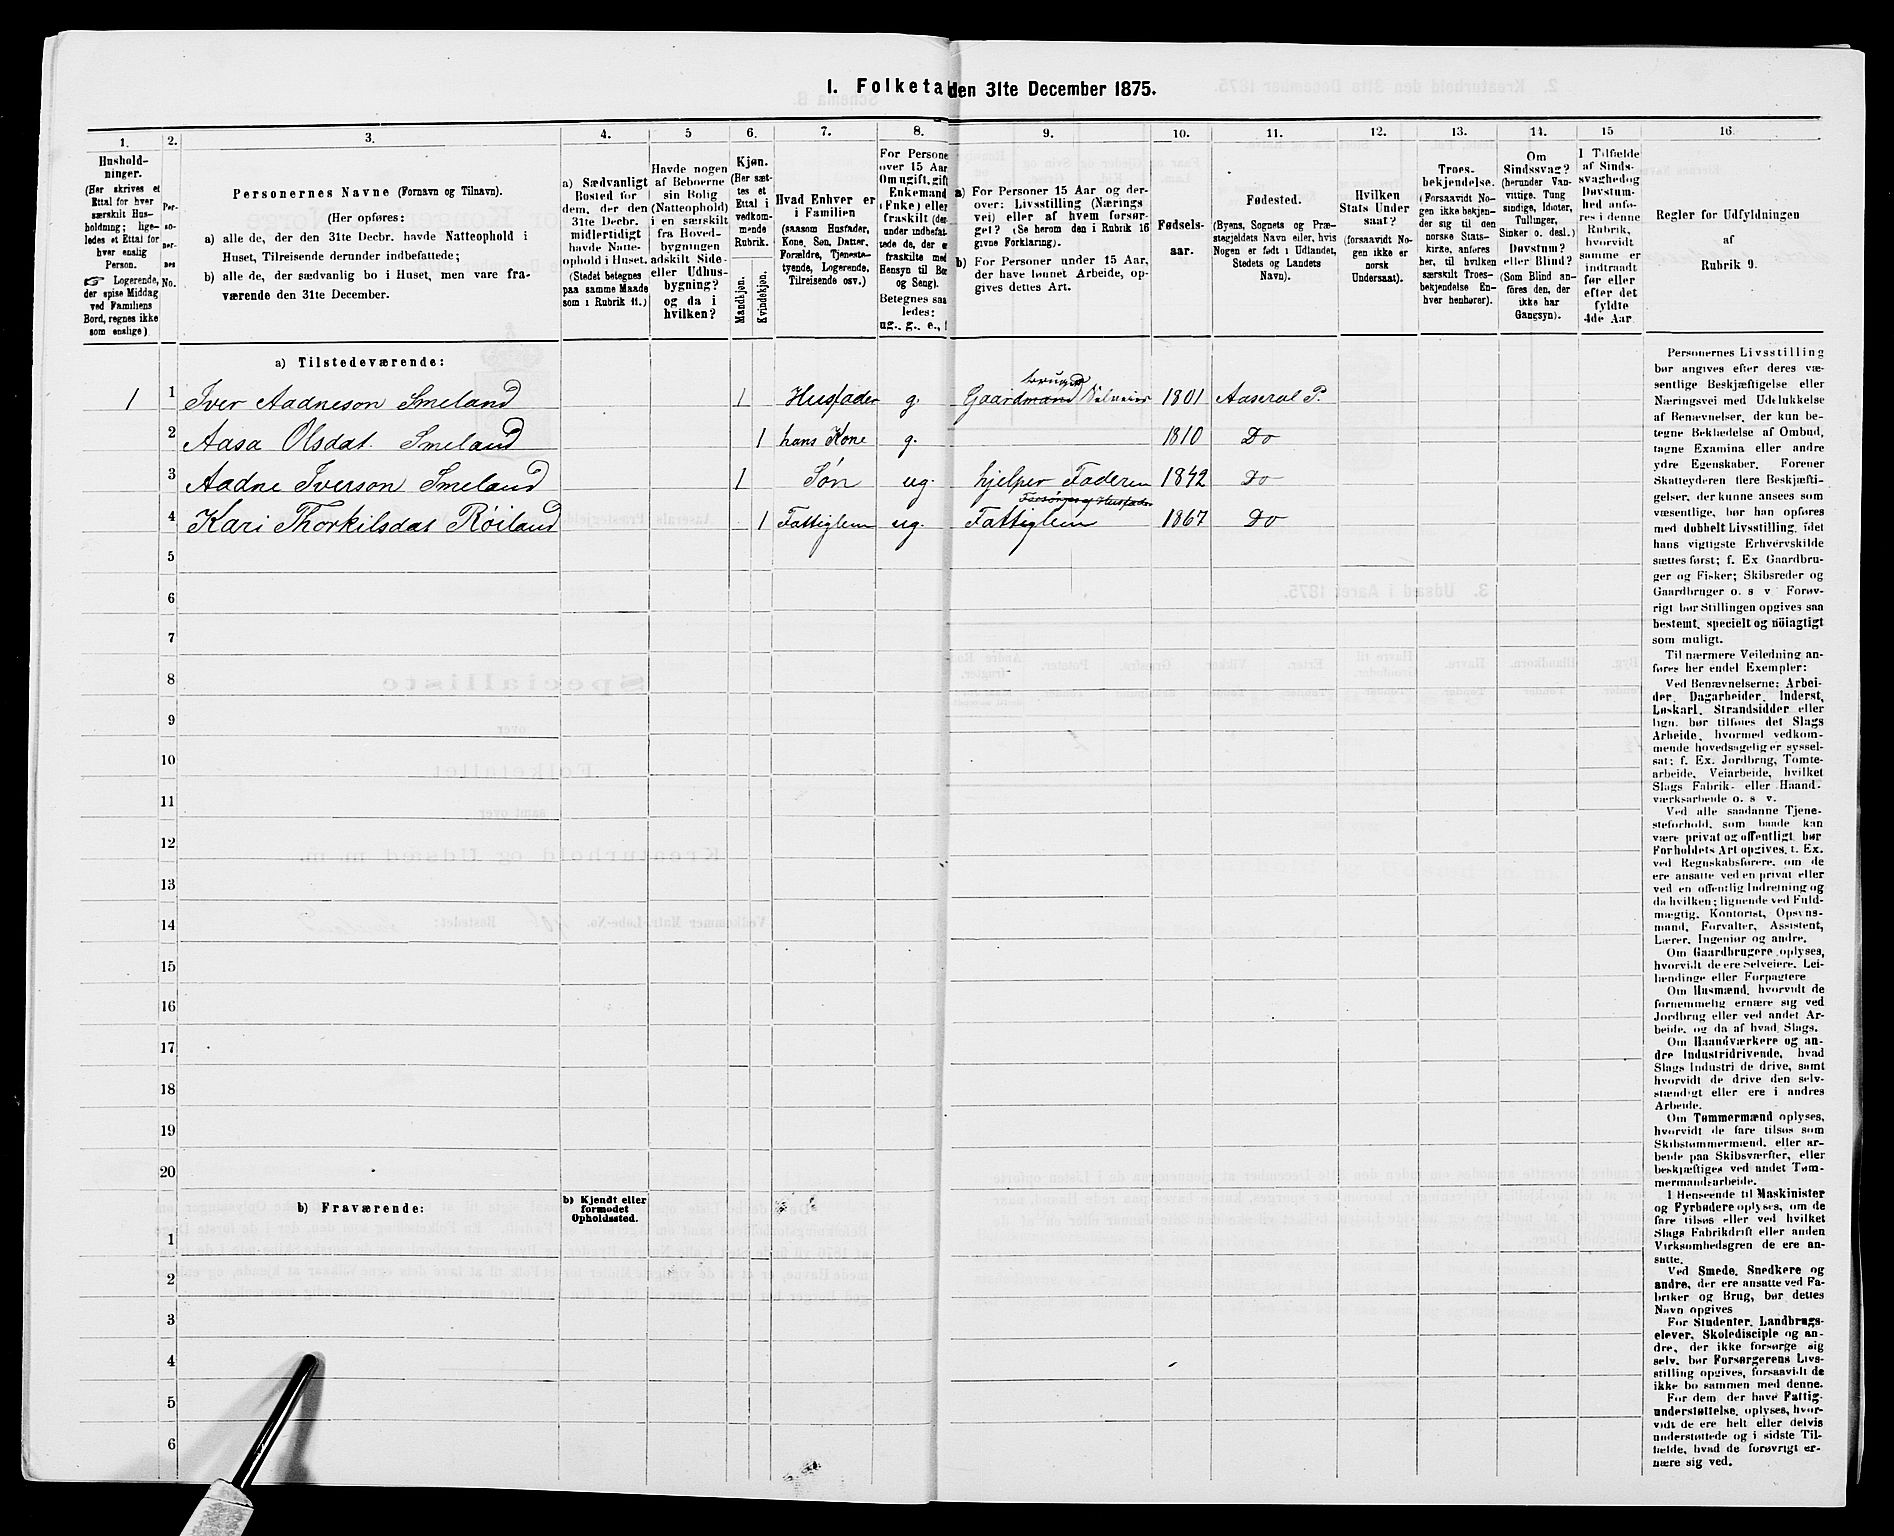 I. Folketa den 31te December 1875.
1.
Hushold-
ninger.
(Her skrives et
Ettal for hver
særskilt Hus-
holdning; lige-
ledes et Ettal for
hver enslig
Person.
☞ Logerende,
der spise Middag
ved Familiens
Bord, regnes ikke
som enslige)
2.
Per-
so-
ner-
nes
No.
3.
Personernes Navne (Fornavn og Tilnavn).
(Her opføres:
a) alle de, der den 31te Decbr. havde Natteophold i
Huset, Tilreisende derunder indbefattede;
b) alle de, der sædvanlig bo i Huset, men vare fra-
værende den 31te December.
4.
a) Sædvanligt
Bosted for
dem, der den
31te Decbr.
midlertidigt
havde Natte-
ophold i Huset.
(Stedet betegnes
paa samme Maade
som i Rubrik 11.)
5
Havde nogen
af Beboerne
sin Bolig
(Natteophold)
i en særskilt
fra Hoved-
bygningen
adskilt Side-
eller Udhus-
bygning?
og da i
hvilken?
6.
Kjøn.
(Her sæt-
tes et
Ettal i
vedkom-
mende
Rubrik.
Mandkjøn.
Kvindekjøn.
7.
Hvad Enhver er
i Familien
(saasom Husfader,
Kone, Søn, Datter,
Forældre, Tjeneste-
tyende, Logerende,
Tilreisende osv.)
8.
For Persone
over 15 Aar
Om ugift, gift
Enkemand
(Enke) eller
fraskilt (der-
under indbefat-
tede de, der er
fraskilte med
Hensyn til Bor
og Seng).
Betegnes saa
ledes:
ug., g., e., f
9.
a) For Personer 15 Aar og der-
over: Livsstilling (Nærings
vei) eller af hvem forsør-
get? (Se herom den i Rubrik 16
givne Forklaring).
b) For Personer under 15 Aar,
der have lønnet Arbeide, op-
gives dettes Art.
10.
Fødsels-
aar.
11.
Fødested.
(Byens, Sognets og Præ-
stegjeldets Navn eller, hvis
Nogen er født i Udlandet,
Stedets og Landets
Navn).
12.
Hvilken
Stats Under
saat?
(forsaavidt No-
gen ikke er
norsk
Undersaat).
13.
Troes-
bekjendelse.
(Forsaavidt No-
gen ikke bekjen-
der sig til den
norske Stats-
kirke, anføres
her, til hvilken
særskilt Troes-
bekjendelse En-
hver henhører).
14.
Om
Sindssvag?
(herunder Van-
vittige, Tung
sindige, Idioter,
Tullinger,
Sinker o. desl.)
Døvstum?
eller Blind?
(Som Blind an-
føres den, der
ikke har
Gangsyn).
15
I Tilfælde
af Sinds-
svaghed og
Døvstum-
hed anfø-
res i denne
Rubrik,
hvorvidt
samme er
indtraadt
før eller
efter det
fyldte
4de Aar.
16.
Regler for Udfyldningen
af
Rubrik 9.
a) Tilstedeværende:
1 1 Iver Aadneson Smeland 1 Husfader g. Gaardmand bruger Selveier 1801 Aaseral P.
2 Aasa Olsdat. Smeland 1 hans Kone g. 1810 Do
3 Aadne Iverson Smeland 1 Søn ug. hjelper Faderen 1842 Do
Forsørges af Husfader
4 Kari Thorkilsdat Röiland 1 Fattiglem ug. Fattiglem 1867 Do
5
6
7
8
9
10
11
12
13
14
15
16
17
18
19
20
b) Fraværende:
b) Kjendt eller
formodet
Opholdssted.
1
2
3
4
5
6
Personernes Livsstilling
bør angives efter deres væ-
sentlige Beskjæftigelse eller
Næringsvei med Udelukkelse
af Benævnelser, der kun be-
tegne Beklædelse af Ombud,
tagne Examina eller andre
ydre Egenskaber. Forener
Skatteyderen flere Beskjæfti-
gelser, der kunne ansees som
væsentlige, bør han opføres
med dobbelt Livsstilling, idet
hans vigtigste Erhvervskilde
sættes først; f. Ex Gaardbru-
ger og Fisker; Skibsreder og
Gaardbruger o. s v Forøv-
rigt bør Stillingen opgives saa
bestemt, specielt og nöiagtigt
som muligt.
Til nærmere Veiledning an-
føres her endel Exempler:
Ved Benævnelserne: Arbei-
der, Dagarbeider, Inderst,
Løskarl, Strandsidder eller
lign. bør tilføies det Slags
Arbeide, hvormed vedkom-
mende hovedsagelig er syssel-
sat; f. Ex. Jordbrug, Tomte-
arbeide, Veiarbeide, hvilket
Slags Fabrik- eller Haand-
værksarbeide o. s v.
Ved alle saadanne Tjene-
steforhold, som baade kan
være privat og offentligt, bør
Forholdets Art opgives, f. Ex.
ved Regnskabsførere, om de
ere ansatte ved en privat eller
ved en offentlig Indretning og
da hvilken; lignende ved Fuld-
mægtig, Kontorist, Opsyns-
mand, Forvalter, Assistent,
Lærer, Ingeniør og andre.
Om Gaardbrugere oplyses,
hvorvidt de ere Selveiere, Lei-
lændinge eller Forpagtere
Om Husmænd, hvorvidt de
fornemmelig ernære sig ved
Jordbrug eller ved andet Ar-
beide, og da af hvad Slags.
Om Haandværkere og an-
dre Industridrivende, hvad
Slags Industri de drive, samt
hvorvidt de drive den selv-
stændigt eller ere i andres
Arbeide.
Om Tømmermænd oplyses,
hvorvidt de fare tilsøs som
Skibstømmermænd, eller ar-
beide paa Skibsværfter, eller
beskjæftiges ved andet Tøm-
mermandsarbeide.
I Henseende til Maskinister
og Fyrbødere oplyses, om de
fare tilsøs eller ved hvilket
Slags Fabrikdrift eller anden
Virksomhedsgren de ere an-
satte.
Ved Smede, Snedkere og
andre, der ere ansatte ved Fa-
briker og Brug, bør dettes
Navn opgives
For Studenter, Landbrugs-
elever, Skoledisciple og an-
dre, der ikke forsørge sig
selv, bør Forsørgerens Livs-
stilling opgives, forsaavidt de
ikke bo sammen med denne.
For dem, der have Fattig-
understøttelse, oplyses, hvor-
vidt de ere helt eller delvis
understøttede og i sidste Til-
fælde, hvad de forøvrigt er-
nære sig ved.